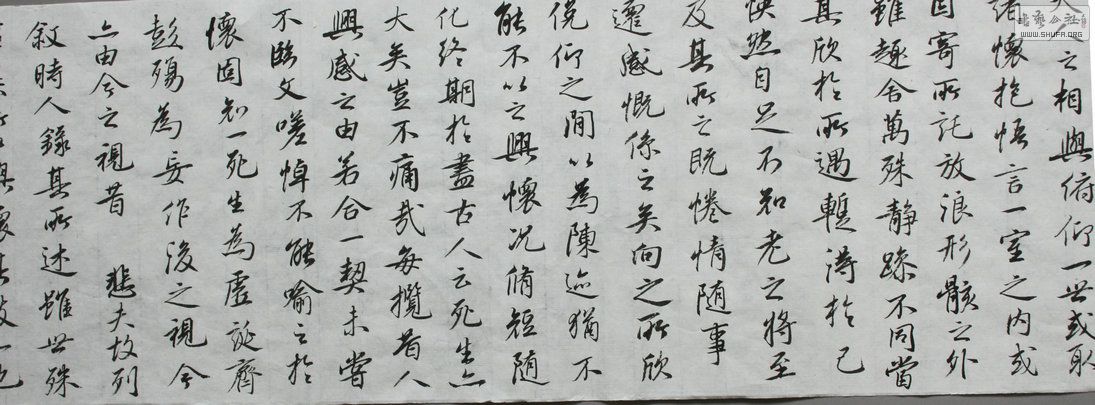 人之相與俯仰一世或取
諸懷抱悟言一室之内或
因寄所託放浪形骸之外
雖趣舍萬殊静躁不同當
其欣於所遇蹔得於己
快然自足不知老之將至
及其所之既惓情随事
遷感慨係之矣向之所欣
俛仰之閒以為陳迹猶不
能不以之興懷況脩短随
化終期於盡古人云死生亦
大矣豈不痛哉每攬昔人
興感之由若合一契未嘗
不臨文嗟悼不能喻之於
懷固知一死生為虛誕齊
彭殤為妄作後之視今
亦由今之視昔 悲夫故列
敘時人錄其所述雖世殊
興懷其致一也
書藝公社
WWW.SHUFA.ORG